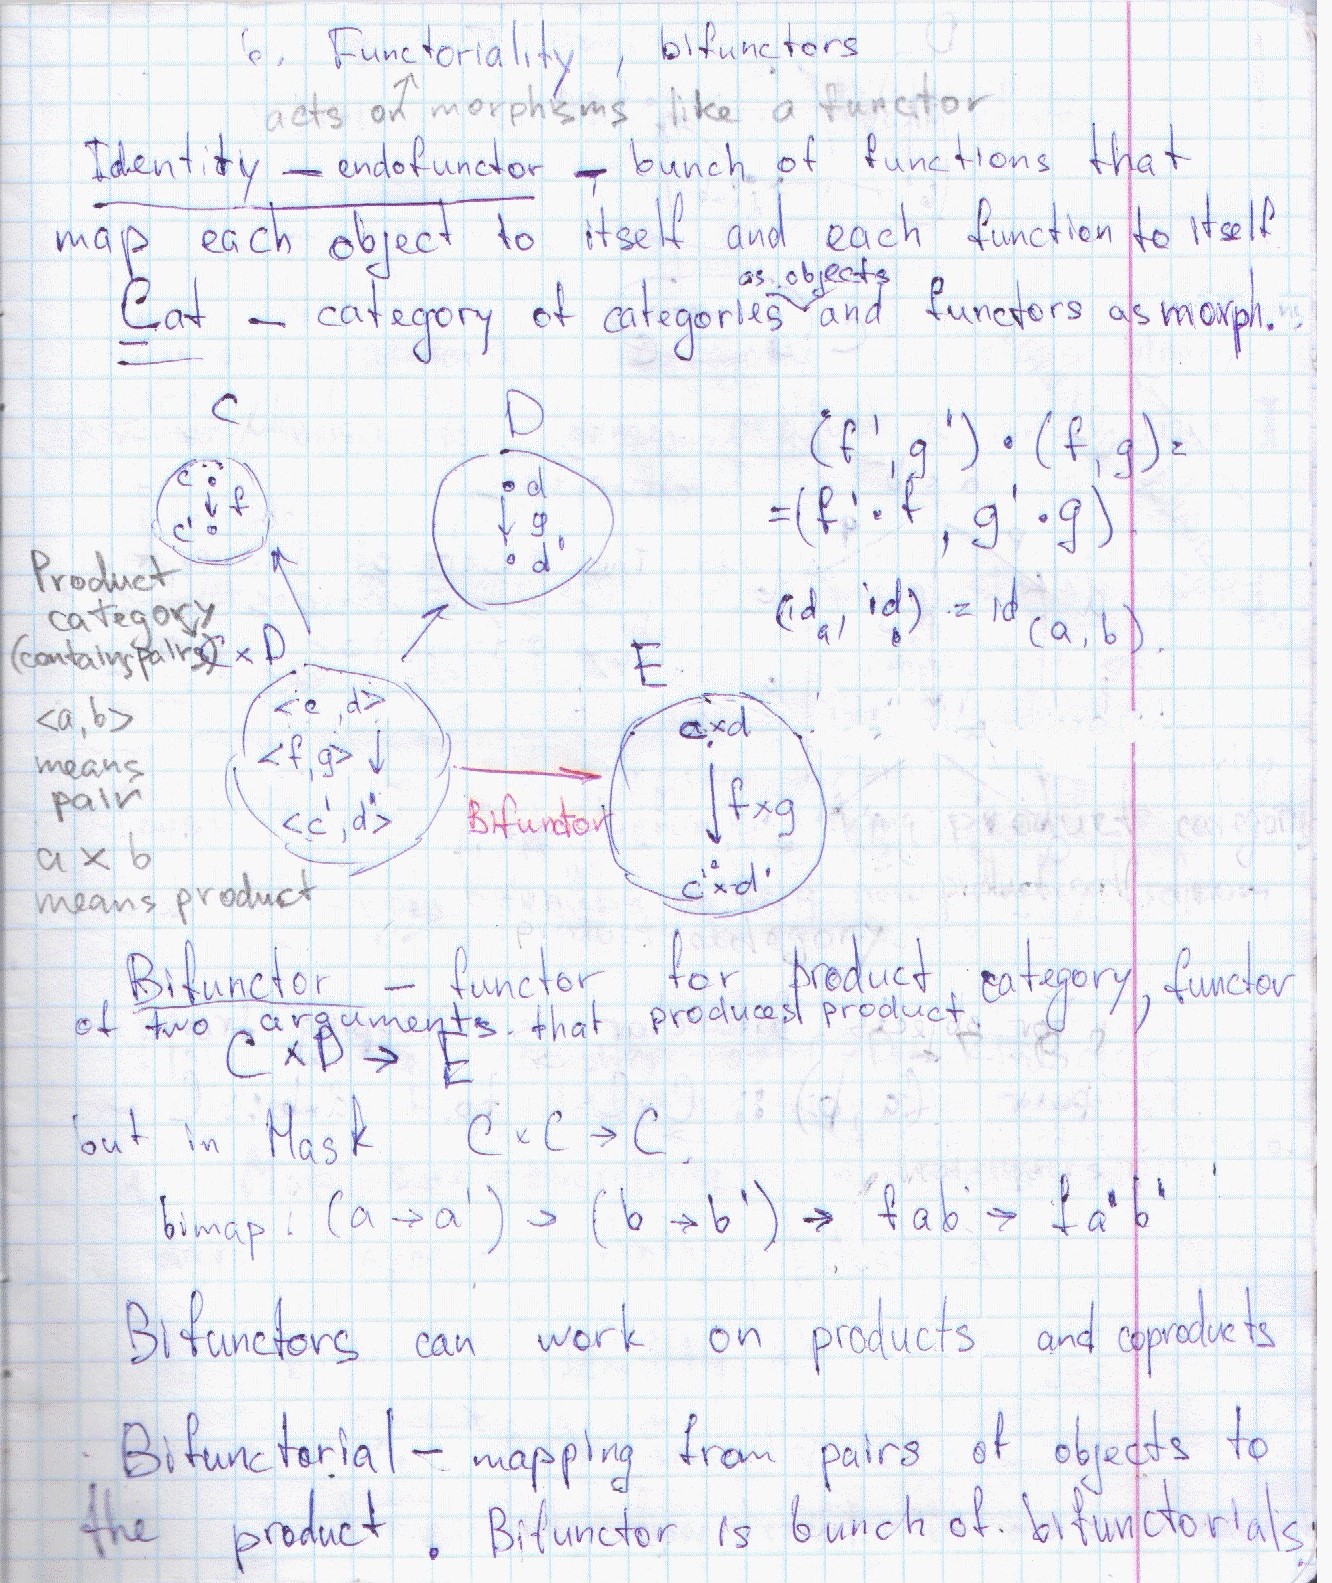 6. Functoriality, bifunctors
acts on morphisms like a functor
Identity – endofunctor – bunch of functions that
map each object to itself and each function to itself
as objects
Cat – category of categories and functors as morph.
C
D
c
f
c'
d
g
d'
(f', g') · (f, g) =
= (f' · f, g' · g)
(id_a, id_b) = id_(a, b).
Product
category
(contains pairs)
C × D
<a, b>
means
pair
a × b
means product
<c, d>
<f, g> ↓
<c', d'>
Bifunctor
E
c×d
↓ f×g
c'×d'
Bifunctor – functor for product category, functor
of two arguments that produces product.
C × D → E
but in Hask C × C → C
bimap: (a → a') → (b → b') → f a b → f a' b'
Bifunctors can work on products and coproducts
Bifunctorial – mapping from pairs of objects to
the product. Bifunctor is bunch of bifunctorials.